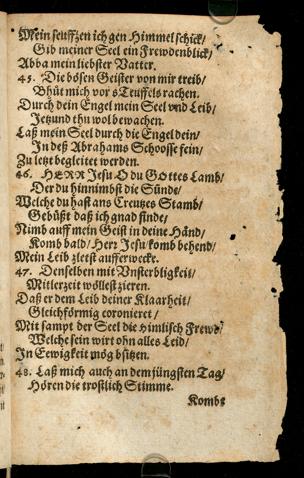 Mein seuffzen ich gen Himmel schick/
Gib meiner Seel ein Frewdenblick/
Abba mein liebster Vatter.
45. Die bösen Geister von mir treib/
Bhüt mich vor s Teuffels rachen.
Durch dein Engel mein Seel vnd Leib/
Jetzund thu wol bewachen.
Laß mein Seel durch die Engel dein/
In deß Abrahams Schoosse fein/
Zu letzt begleitet werden.
46. HERR Jesu O du GOttes Lamb/
Der du hinnimbst die Sünde/
Welche du hast ans Creutzes Stamb/
Gebüßt daß ich gnad finde/
Nimb auff mein Geist in deine Händ/
Komb bald/ Herr Jesu/ komb behend/
Mein Leib zletzt aufferwecke.
47. Denselben mit Vnsterbligkeit/
Mitlerzeit wöllest zieren.
Daß er dem Leib deiner Klaarheit/
Gleichförmig coronieret/
Mit sampt der Seel die himlisch Frewd/
Welche sein wirt ohn alles Leid/
In Eewigkeit mög bsitzen.
48. Laß mich auch an dem jüngsten Tag/
Hören die trostlich Stimme.
Kombt